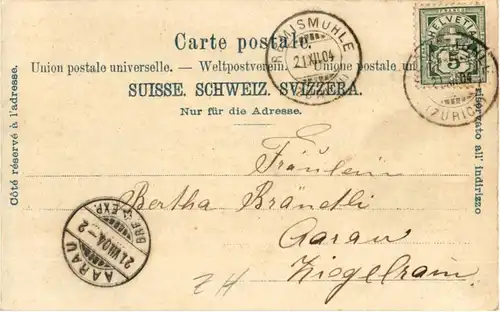 Carte postale.
Union postale universelle. — Weltpostverein. — Unione postale
SUISSE. SCHWEIZ. SVIZZERA.
Nur für die Adresse.
Côté réservé à l'adresse.
riservato all' indirizzo
HELVETIA
5
21.XII.04
(ZÜRICH)
AARAU
21.XII.04.-2
BRF. EXP.
Fräulein
Bertha Brändli
Aarau
Ziegelrain.
ZH